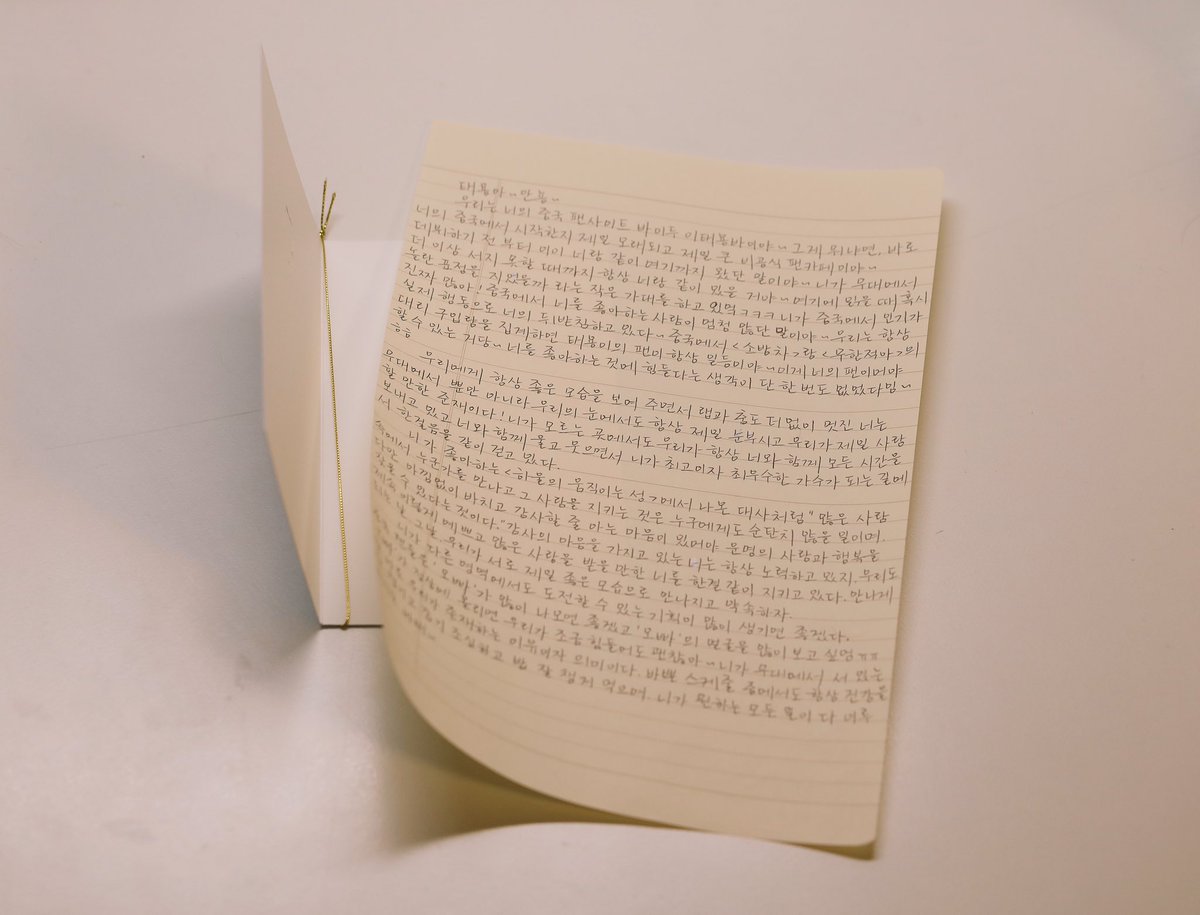 태용아~안용~
우리는 너의 중국 팬사이트 바이두 이태용바이야~ 그게 뭐냐면, 바로
너의 중국에서 시작한지 제일 오래되고 제일 큰 비공식 팬카페이야~
데뷔하기 전 부터 이미 너랑 같이 여기까지 왔단 말이야~ 니가 무대에서
더 이상 서지 못할 때까지 항상 너랑 같이 있을 거야~ 여기에 왔을 때 혹시
놀란 표정을 지었을까 라는 작은 기대를 하고 있엌ㅋㅋㅋ 니가 중국에서 인기가
진짜 많아! 중국에서 너를 좋아하는 사람이 엄청 많단 말이야~ 우리는 항상
실제 행동으로 너의 뒤받침하고 있다~ 중국에서 <소방차>랑 <무한적아>의
대리 구입량을 집계하면 태용이의 팬이 항상 일등이야~ 이게 너의 팬이어야
할 수 있는 거당~ 너를 좋아하는 것에 힘들다는 생각이 단 한번도 없었다잉~
ㅎㅎ
우리에게 항상 좋은 모습을 보여 주면서 랩과 춤도 더없이 멋진 너는
무대에서 뿐만 아니라 우리의 눈에서도 항상 제일 눈부시고 우리가 제일 사랑
할 만한 존재이다! 니가 모르는 곳에서도 우리가 항상 너와 함께 모든 시간을
보내고 있고 너와 함께 울고 웃으면서 니가 최고이자 최우수한 가수가 되는 길에
서 한걸음을 같이 걷고 있다.
니가 좋아하는 <하울의 움직이는 성>에서 나온 대사처럼 "많은 사람
속에서 누군가를 만나고 그 사람을 지키는 것은 누구에게도 순탄치 않을 일이며,
다만 아낌없이 바치고 감사할 줄 아는 마음이 있어야 운명의 사람과 행복을
찾을 수 있다는 것이다." 감사의 마음을 가지고 있는 너는 항상 노력하고 있지. 우리도
계속 이렇게 예쁘고 많은 사랑을 받을 만한 너를 한결 같이 지키고 있다. 만나게
되는 날 그날 우리가 서로 제일 좋은 모습으로 만나자고 약속하자.
니가 다른 영역에서도 도전할 수 있는 기획이 많이 생기면 좋겠다.
가 많이 나오면 좋겠고 '오빠'의 얼굴을 많이 보고 싶엉ㅠㅠ
올리면 우리가 조금 힘들어도 괜찮아~ 니가 무대에서 서 있는
존재하는 이유이자 의미이다. 바쁜 스케줄 중에서도 항상 건강을
조심하고 밥 잘 챙겨 먹으며, 니가 원하는 모든 일이 다